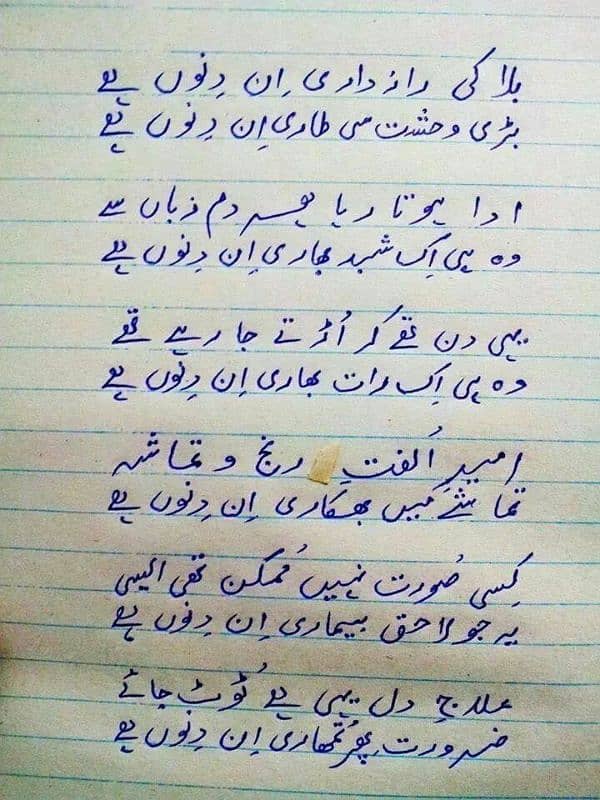 بلا کی رازداری اِن دِنوں ہے
بڑی وحشت سی طاری اِن دِنوں ہے
ادا ہوتا رہا ہے دم زباں سے
وہ ہی اِک شبد بھاری اِن دِنوں ہے
یہی دن تھے کہ اُڑتے جا رہے تھے
وہ ہی اِک رات بھاری اِن دِنوں ہے
امیدِ اُلفتِ رنج و تماشہ
تماشے میں بھکاری اِن دِنوں ہے
کِسی صُورت نہیں مُمکن تھی ایسی
یہ جو لاحق بیماری اِن دِنوں ہے
علاجِ دل یہی ہے ٹُوٹ جائے
ضرورت پِھر تُمھاری اِن دِنوں ہے